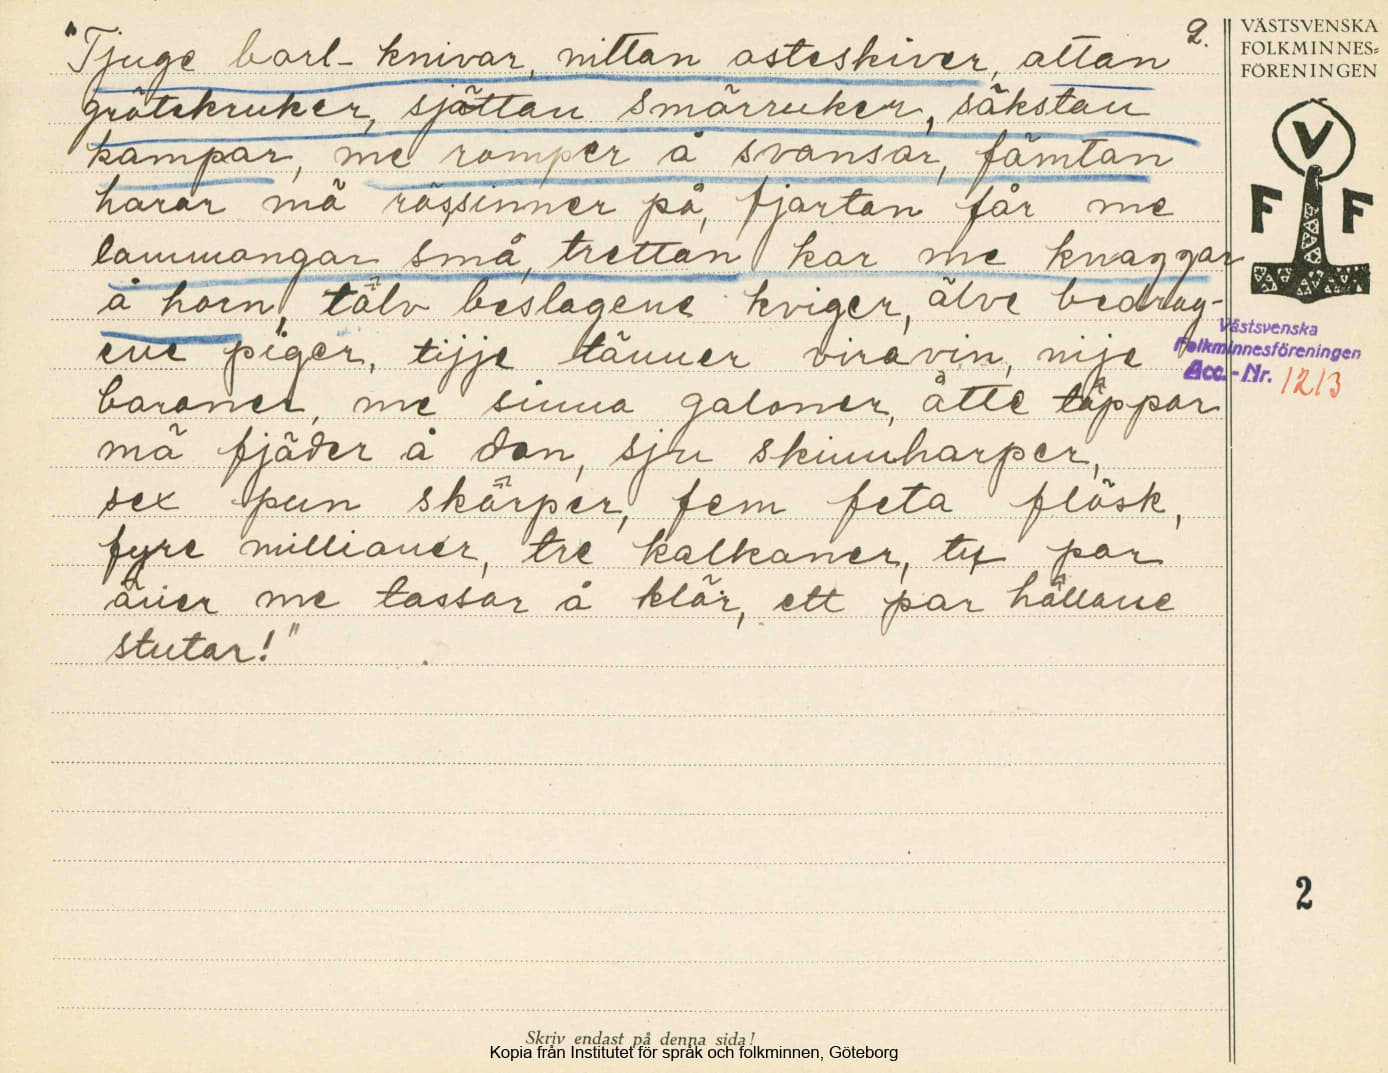 2.
"Tjuge barl- knivar, nittan osteskiver, attan
grötekruker, sjättan smörruker, säkstan
kampar, me romper å svansar, fämtan
harar mä rössinner på, fjortan får me
lammongar små, trettan kor me knaggar
å horn, tålv beslagene kviger, älve bedrag-
ene piger, tijje tänner viravin, nije
baroner, me sinna galoner, åtte täppar
mä fjäder å don, sju skinnharper,
sex pun skårper, fem feta flösk,
fyre millioner, tre kalkaner, ty par
äuer me tassar å klör, ett par hållane
stutar!"
VÄSTSVENSKA
FOLKMINNES=
FÖRENINGEN
V
F F
Västsvenska
Folkminnesföreningen
Acc.-Nr. 1213
2
Skriv endast på denna sida!
Kopia från Institutet för språk och folkminnen, Göteborg